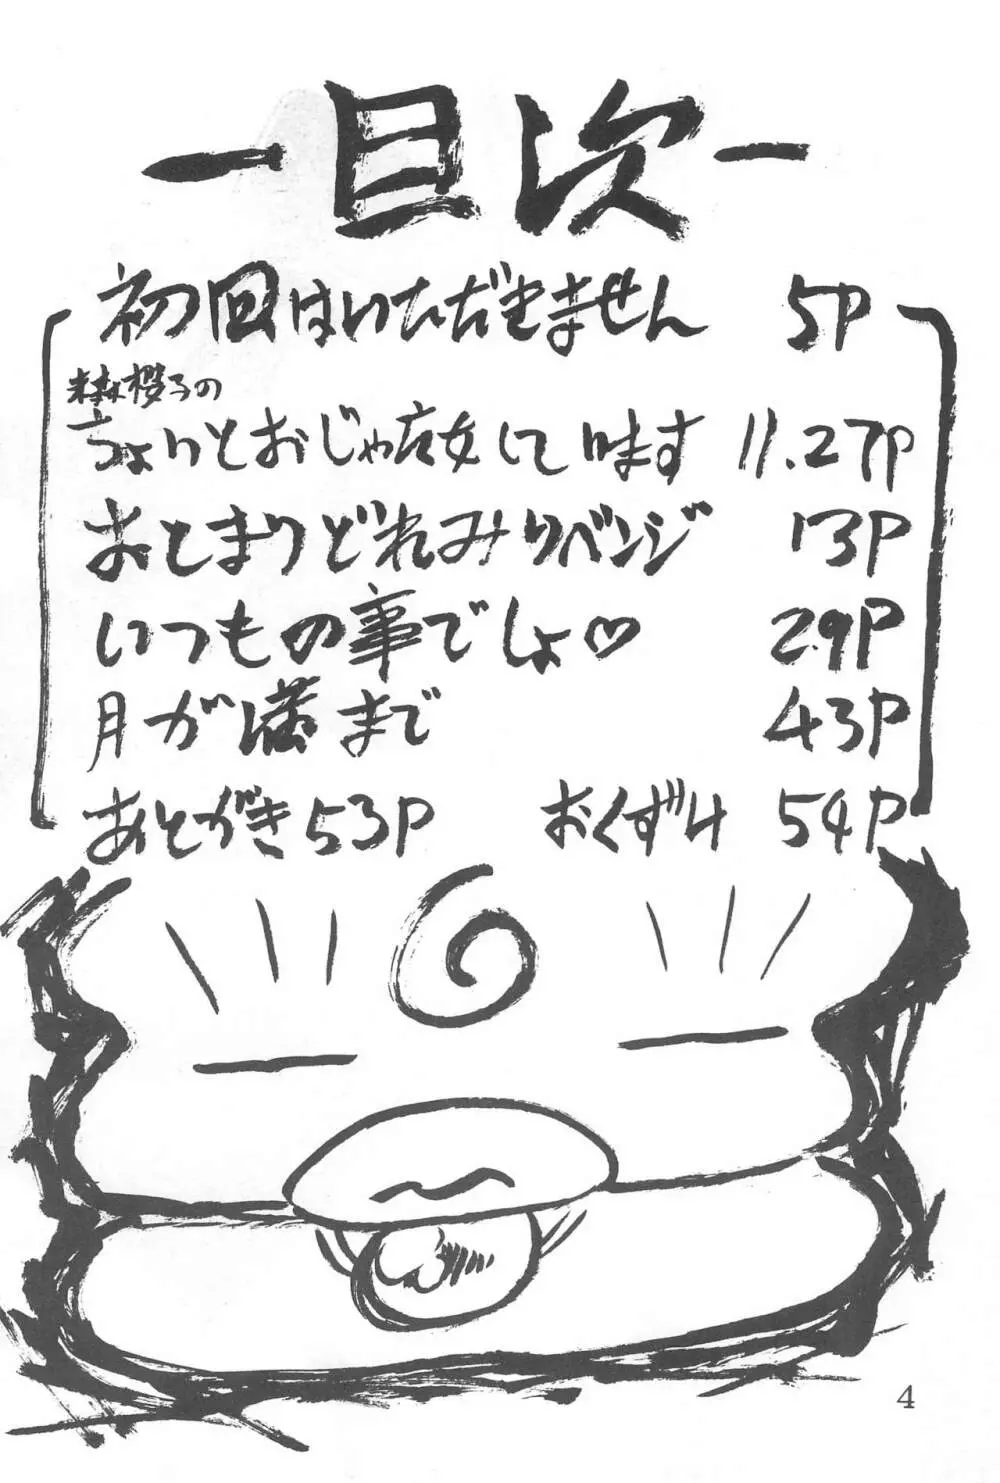 ー目次ー
初回はいただきません 5P
森櫻子の
ちょいとおじゃ魔女して います 11.27P
おとまりどれみリベンジ 13P
いつもの事でしょ♡ 29P
月が満まで 43P
あとがき 53P おくずけ 54P
4